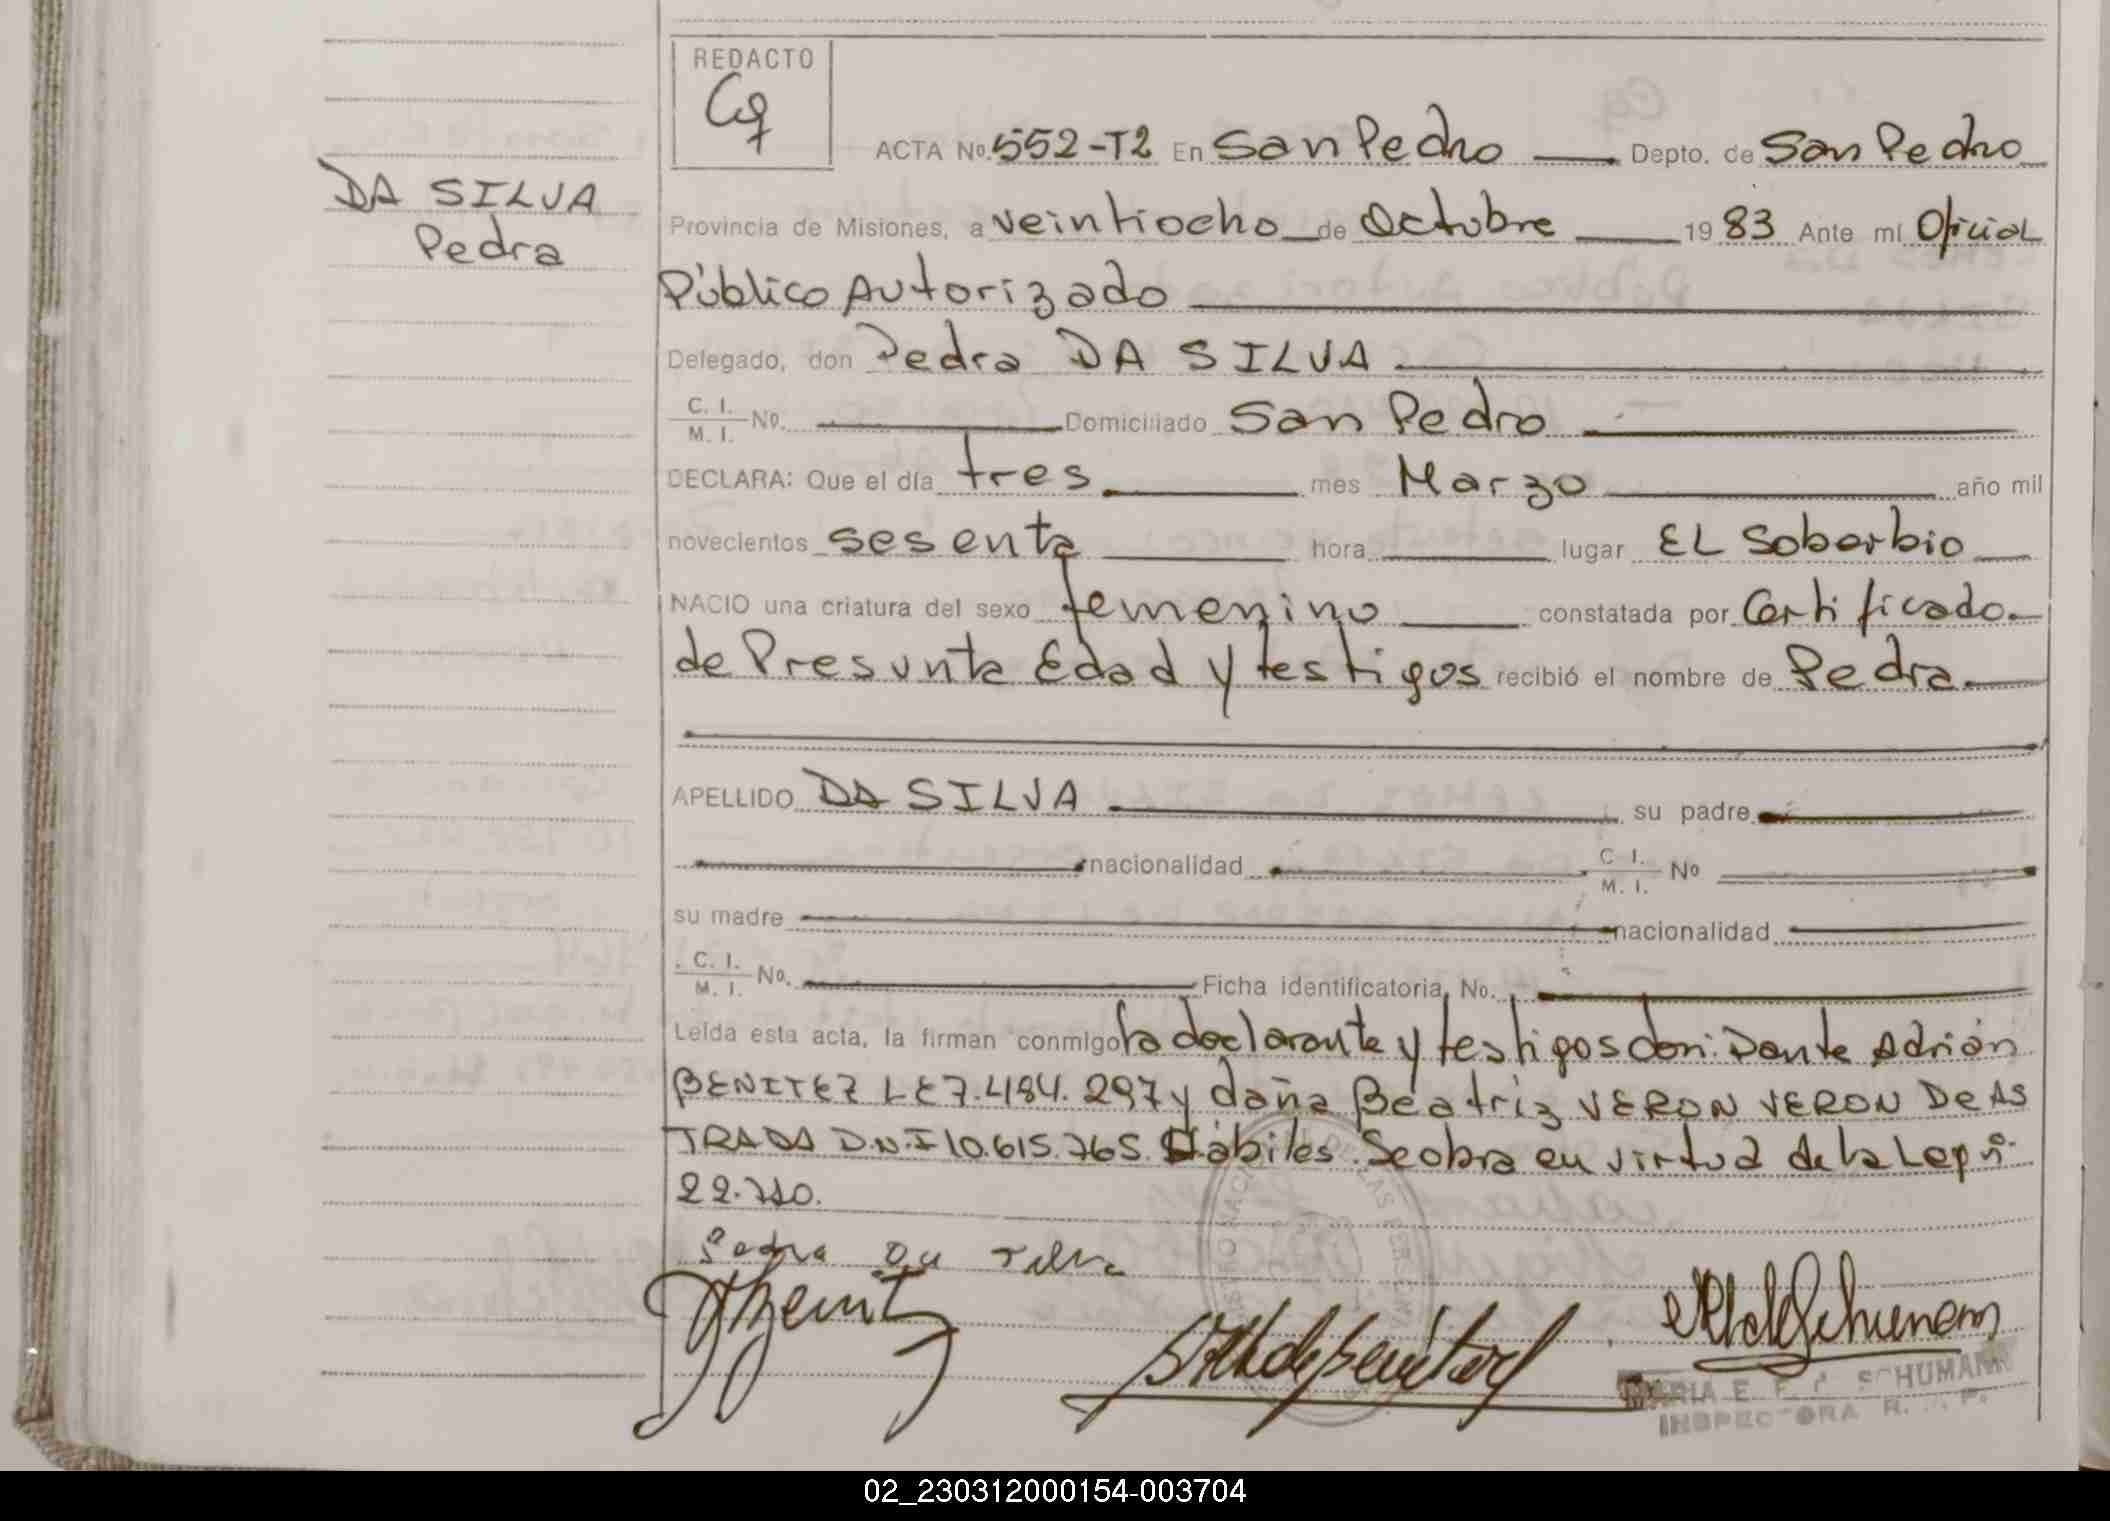 REDACTO
Cg
ACTA No. 552-T2 En San Pedro Depto. de San Pedro
DA SILVA
Pedra
Provincia de Misiones, a veintiocho de Octubre 19 83 Ante mí Oficial
Público Autorizado
Delegado, don Pedra DA SILVA
C. I.
M. I. No. Domiciliado San Pedro
DECLARA: Que el día tres mes Marzo año mil
novecientos sesenta hora lugar EL Soberbio
NACIO una criatura del sexo femenino constatada por Certificado
de Presunta Edad y testigos recibió el nombre de Pedra
APELLIDO DA SILVA su padre
nacionalidad C. I.
M. I. No
su madre nacionalidad
C. I.
M. I. No. Ficha identificatoria, No.
Leída esta acta, la firman conmigo la declarante y testigos don: Dante Adrián
BENITEZ LE 7.484.297 y doña Beatriz VERON VERON DE AS
TRADA D.N.I 10.615.765. Hábiles. Se obra en virtud de la Ley nº
22.710.
Pedra Da Silva
MARIA E. F. SCHUMANN
INSPECTORA R. P.
02_230312000154-003704